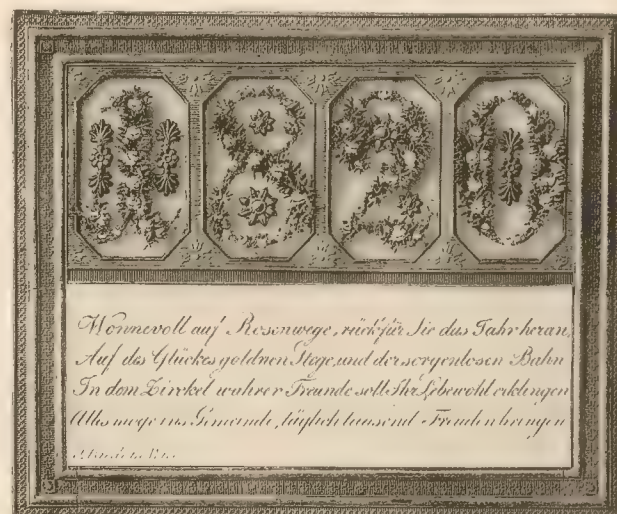 1820
Wonnevoll auf Rosenwege, rück für Sie das Jahr heran,
Auf des Glückes goldnen Stege, und der sorgenlosen Bahn
In dem Zirckel wahrer Freunde soll Ihr Lebewohl erklingen
Alles möge ins täglich tausend Freuden bringen